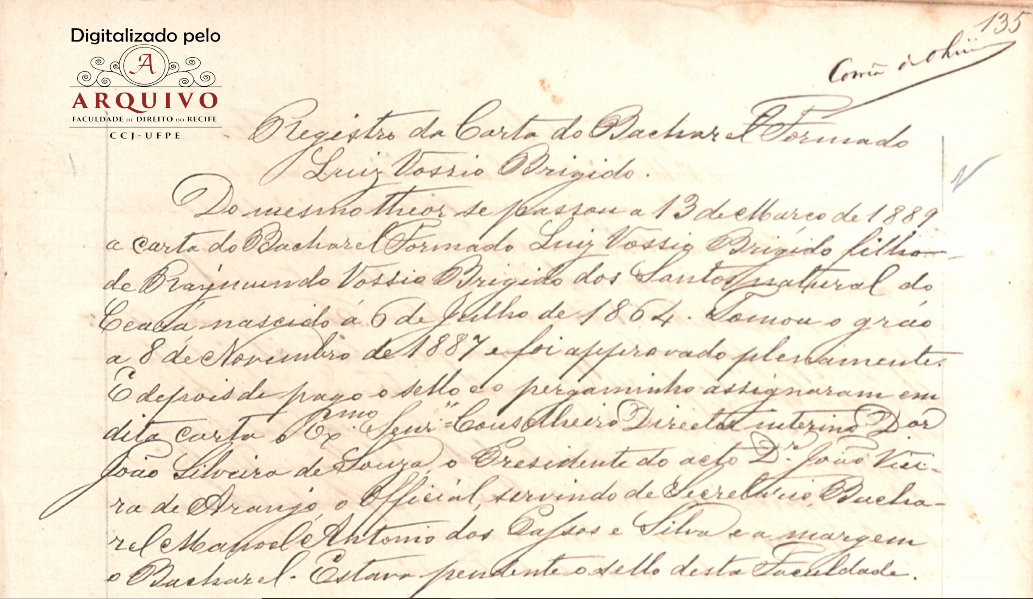 Digitalizado pelo
A
ARQUIVO
FACULDADE DE DIREITO DO RECIFE
CCJ-UFPE
135
Registro da Carta do Bacharel Formado
Luiz Vossio Brigido.
Do mesmo theor se passou a 13 de Março de 1889
a carta do Bacharel Formado Luiz Vossio Brigido filho
de Raymundo Vossio Brigido dos Santos, natural do
Ceará nascido á 6 de Julho de 1864. Tomou o gráo
a 8 de Novembro de 1887 e foi approvado plenamente.
E depois de pago o sello e o pergaminho assignaram em
dita carta o Ex.mo Senr. Conselheiro Director interino Dor
João Silveira de Souza, o Presidente do acto Dr. João Viei-
ra de Araujo, o Official, servindo de Secretario, Bacha-
rel Manoel Antonio dos Passos e Silva e a margem
o Bacharel. Estava pendente o sello desta Faculdade.